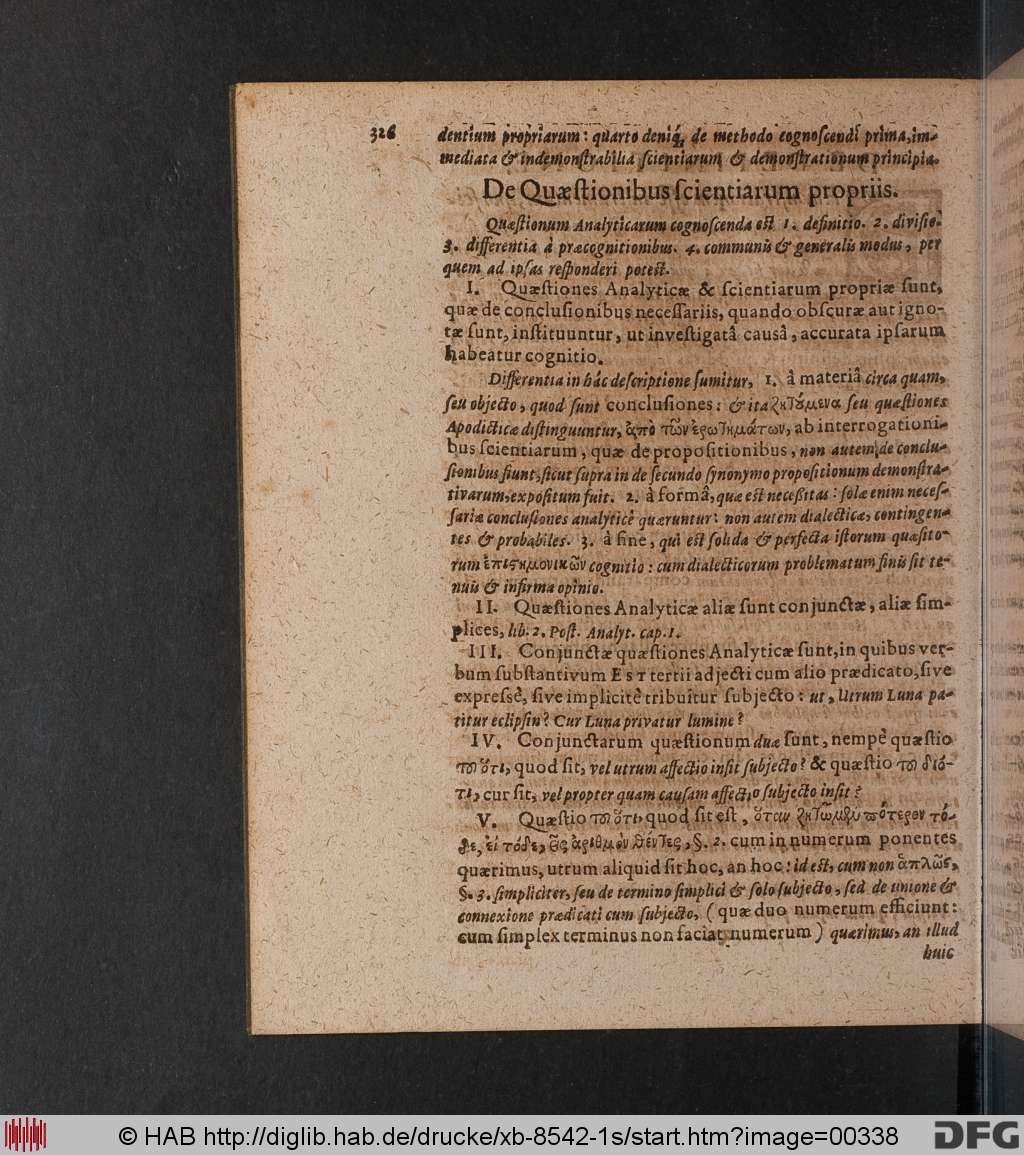 326
dentium propriarum: quarto deniq́, de methodo cognoſcendi prima, im-
mediata & indemonſtrabilia ſcientiarum & demonſtrationum principia.
De Quæſtionibus ſcientiarum propriis.
Quæſtionum Analyticarum cognoſcenda est 1. definitio. 2. diviſio.
3. differentia à præcognitionibus. 4. communis & generalis modus, per
quem ad ipſas reſponderi potest.
I. Quæſtiones Analyticæ & ſcientiarum propriæ ſunt,
quæ de concluſionibus neceſſariis, quando obſcuræ aut igno-
tæ ſunt, inſtituuntur, ut inveſtigatâ causâ, accurata ipſarum
habeatur cognitio.
Differentia in hác deſcriptione ſumitur, 1. â materiâ circa quam,
ſeu objecto, quod ſunt concluſiones: & ita ζητούμενα ſeu quæſtiones
Apodicticæ diſtinguuntur, ἀπὸ τῶν ἐρωτημάτων, ab interrogationi-
bus ſcientiarum, quæ de propoſitionibus, non autem de conclu-
ſionibus fiunt, ſicut ſupra in de ſecundo ſynonymo propoſitionum demonſtra-
tivarum, expoſitum fuit. 2. à formâ, quæ est neceßitas: ſolæ enim neceſ-
ſariæ concluſiones analyticè quæruntur: non autem dialecticæ, contingen-
tes & probabiles. 3. à fine, qui est ſolida & perfecta iſtorum quæſito-
rum ἐπιςημονικῶν cognitio: cum dialecticorum problematum finis ſit te-
nuis & infirma opinio.
II. Quæſtiones Analyticæ aliæ ſunt conjunctæ, aliæ ſim-
plices, lib. 2. Poſt. Analyt. cap. 1.
III. Conjunctæ quæſtiones Analyticæ ſunt, in quibus ver-
bum ſubſtantivum EST tertii adjecti cum alio prædicato, ſive
expreſsè, ſive implicitè tribuitur ſubjecto: ut, Utrum Luna pa-
titur eclipſin? Cur Luna privatur lumine?
IV. Conjunctarum quæſtionum duæ ſunt, nempè quæſtio
τοῦ ὅτι, quod ſit, vel utrum affectio inſit ſubjecto? & quæſtio τοῦ διό-
τι, cur ſit, vel propter quam cauſam affectio ſubjecto inſit?
V. Quæſtio τοῦ ὅτι, quod ſit eſt, ὅταν ζητῶμεν πότερον τό-
δε, ἢ τόδε, εἰς ἀριθμὸν θέντες, §. 2. cum in numerum ponentes
quærimus, utrum aliquid ſit hoc, an hoc: id est, cum non ἁπλῶς,
§. 3. ſimpliciter, ſeu de termino ſimplici & ſolo ſubjecto, ſed de unione &
connexione prædicati cum ſubjecto, (quæ duo numerum efficiunt:
cum ſimplex terminus non faciat numerum) quærimus, an illud
huic
© HAB http://diglib.hab.de/drucke/xb-8542-1s/start.htm?image=00338
DFG